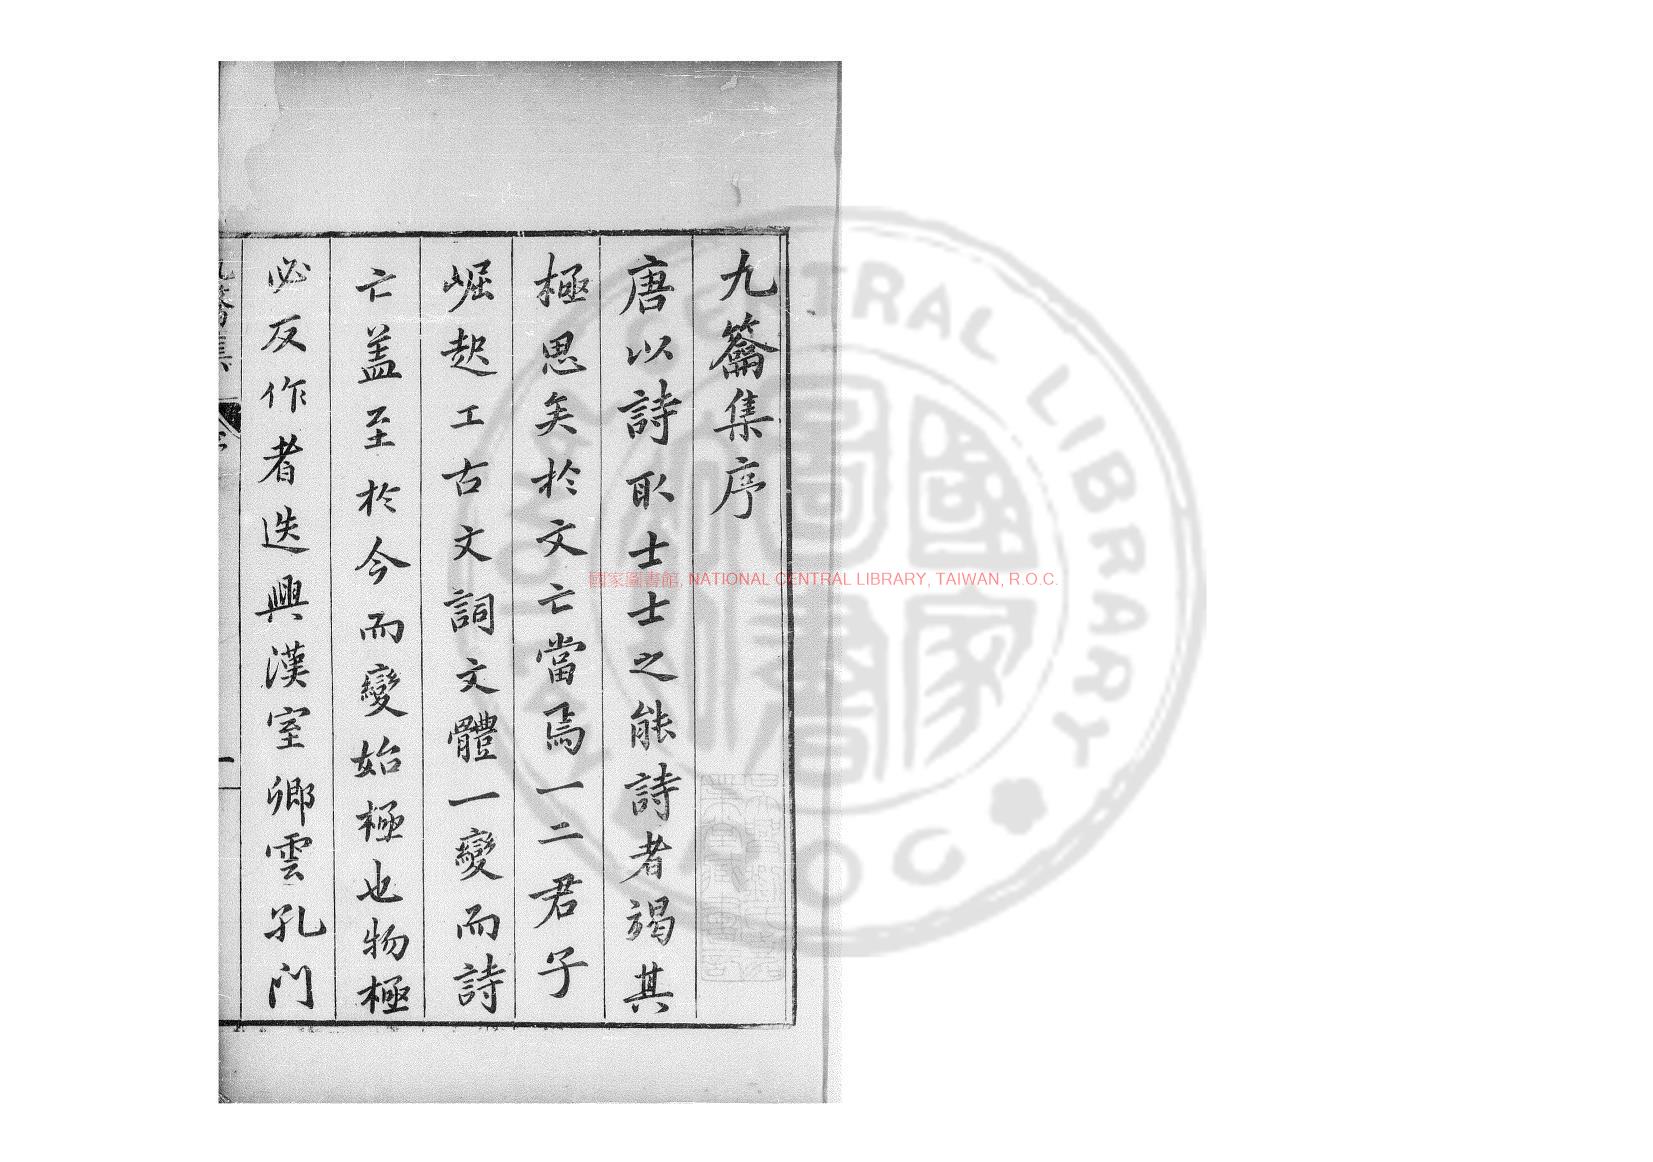 九籥集序
唐以詩取士士之能詩者竭其
極思矣於文亡當焉一二君子
崛起工古文詞文體一變而詩
亡盖至於今而變始極也物極
必反作者迭興漢室卿雲孔門
國家圖書館, NATIONAL CENTRAL LIBRARY, TAIWAN, R.O.C.
CENTRAL LIBRARY
國家圖書